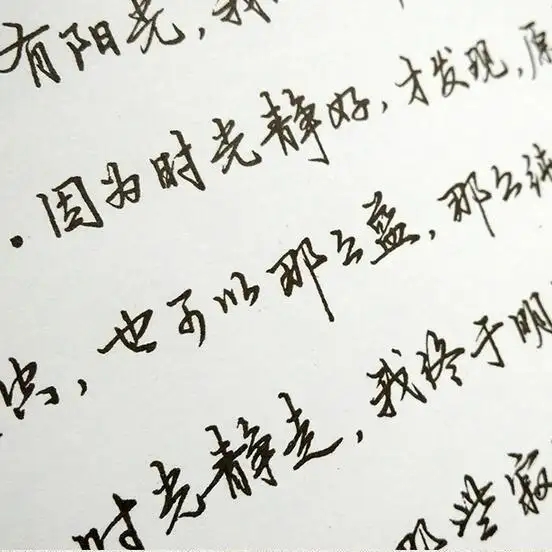 有阳光，我
。因为时光静好，才发现，原
，也可以那么蓝，那么纯
时光静走，我终于明
那些寂